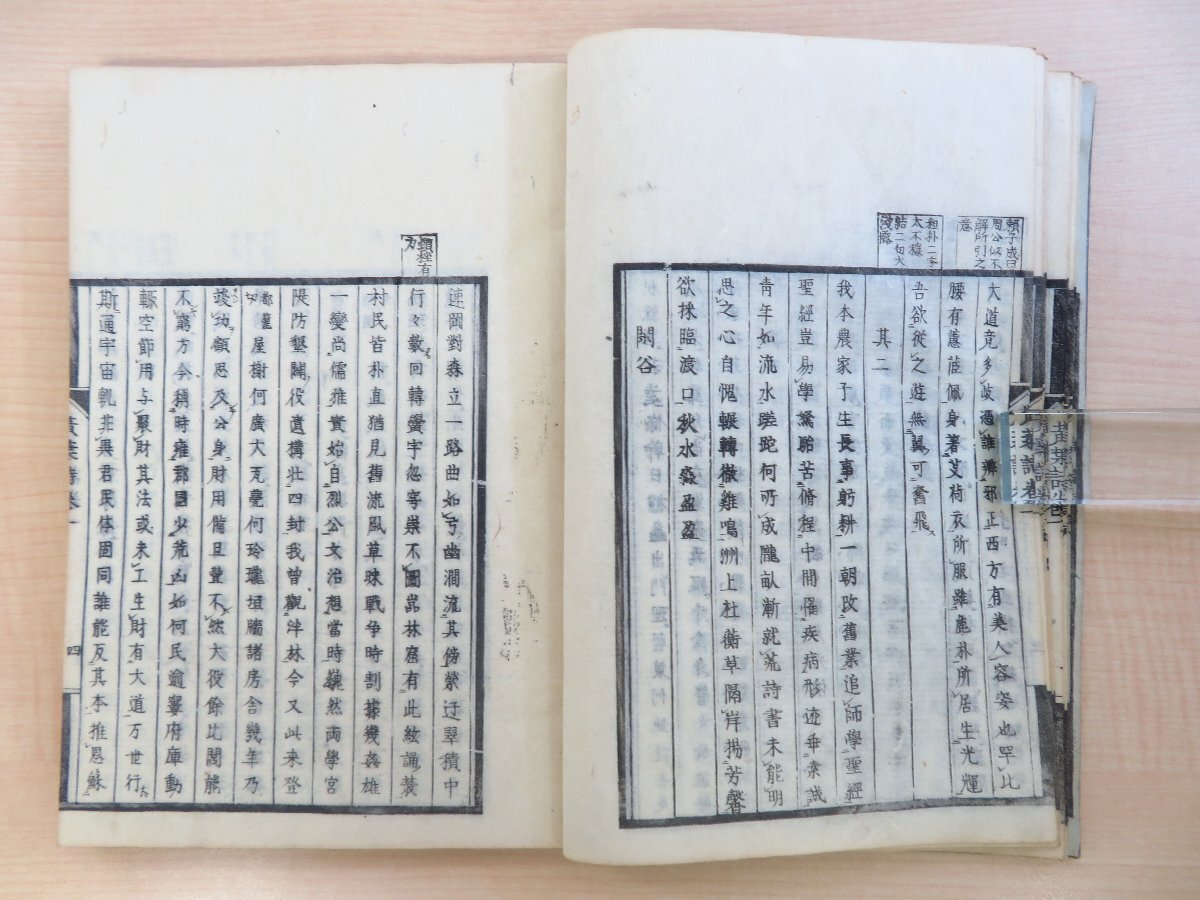 大道竟多岐憑誰辨邪正西方有美人容姿也罕比
腰有蕙茝佩身著芰荷衣所服雖麁朴所居生光輝
吾欲從之遊無翼可奮飛
其二
我本農家子生長事躬耕一朝改舊業追師學聖經
聖經豈易學駑駘苦脩程中間罹疾病形迹乖素誠
青年如流水蹉跎何所成隴畝漸就荒詩書未能明
思之心自愧輾轉徹雞鳴洲上杜蘅草隔岸揚芳馨
欲採臨渡口秋水淼盈盈
閑谷
蓮岡對森立一路曲如弓幽澗流其傍縈迂翠積中
行々數回轉黌宇忽穹崇不圖嵓林窟有此絃誦叢
村民皆朴直猶見舊流風草昧戰争時割據幾姦雄
一變尚儒雅實始自烈公文治想當時巍然両學宮
隄防墾闢役遺構壮四封我曾觀泮林今又此来登
屋榭何廣大瓦甍何玲瓏垣牆諸房舎幾年乃
竣功顧思及公身財用備且豊不然大役餘比閭能
不窮方今稱時雍郡國少荒凶如何民逾窶府庫動
輙空節用与聚財其法或未工生財有大道万世行
斯通宇宙軌非異君民体固同誰能反其本推恩蘇
頼子成曰
周公似不
解所引之
意
粗朴二字
太不穏
結二句太
浅露
黄葉詩巻一
四